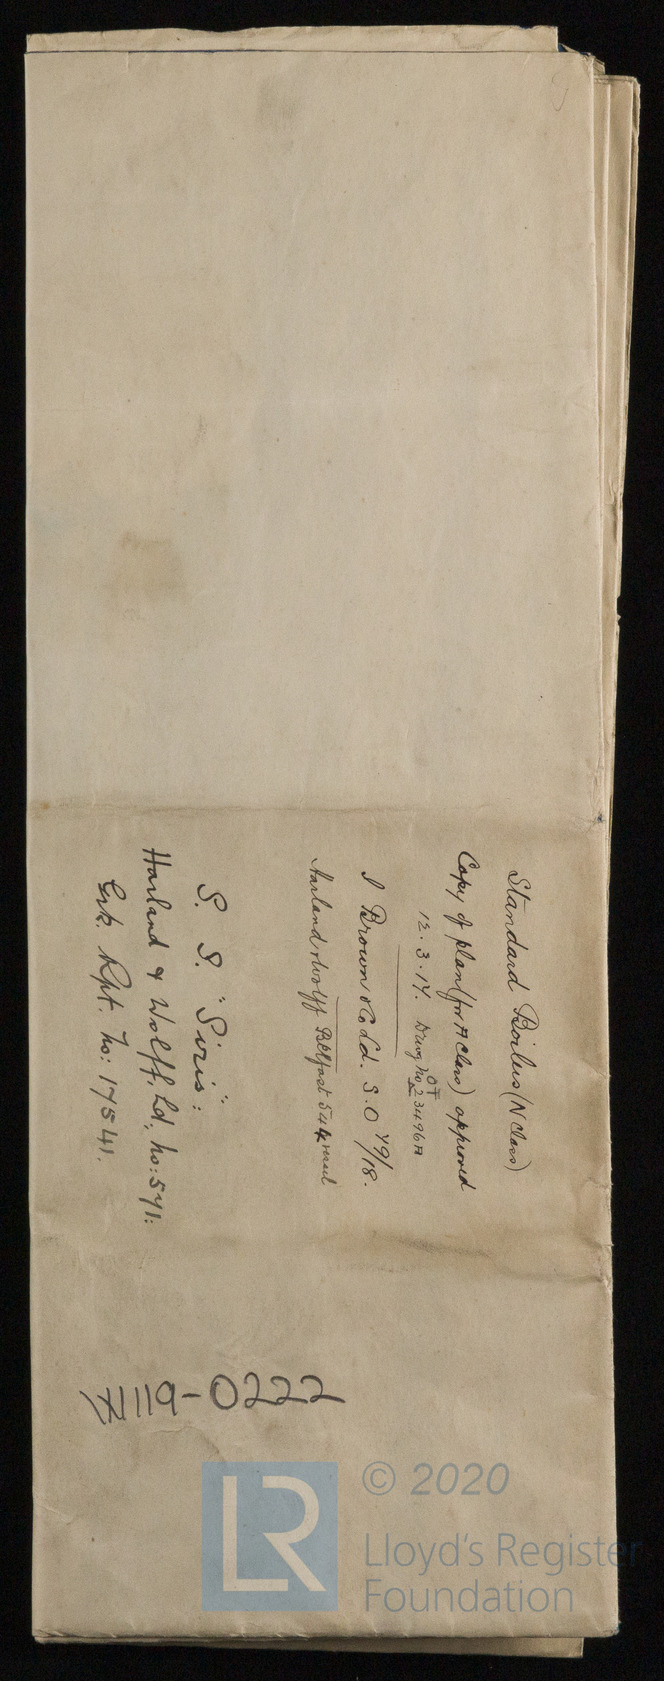 Standard Boilers (N Class)
Copy of plan (for A Class) approved
12.3.17. Dwg No 23496A
J Brown & Co Ld. S.O 49/18.
Harland & Wolff Belfast 544
S. S. "Siris":
Harland & Wolff, Ld; No: 571:
Grk. Rpt. No: 17541.
W1119-0222
© 2020
Lloyd's Register
Foundation
LR